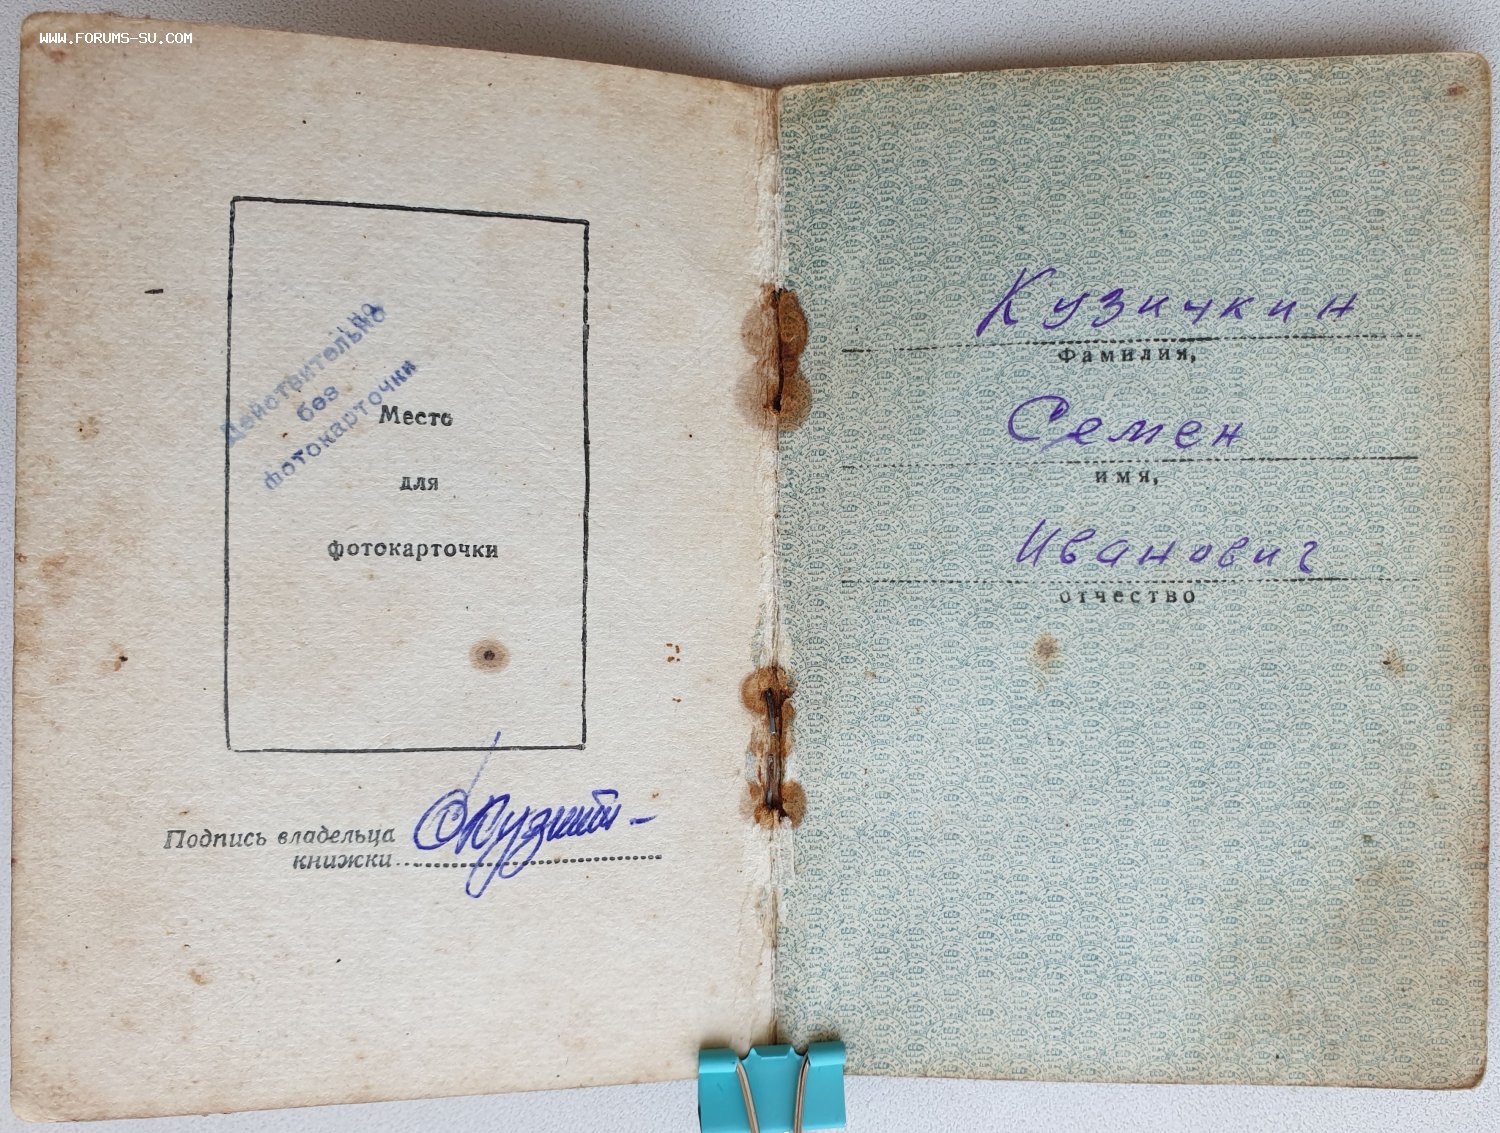 WWW.FORUMS-SU.COM
Действительно
без
фотокарточки
Место
для
фотокарточки
Подпись владельца
книжки
Кузичкин
Фамилия,
Семен
имя,
Иванович
отчество